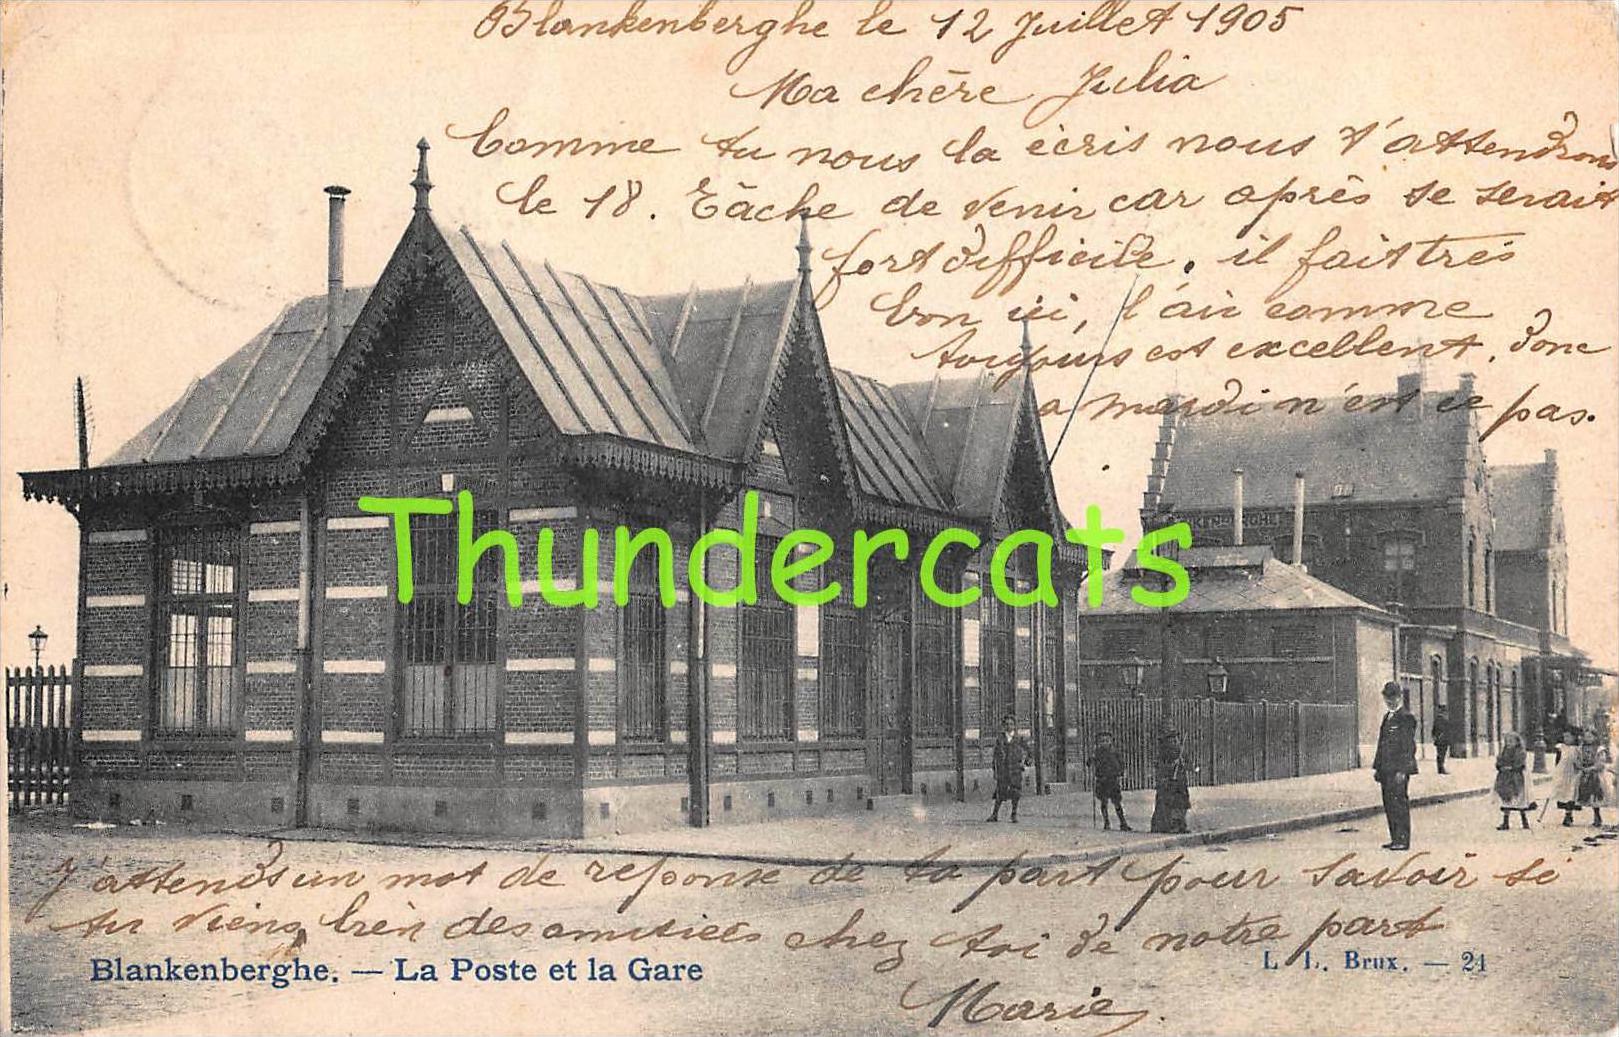 Blankenberghe le 12 Juillet 1905
Ma chère Julia
Comme tu nous la écris nous t'attendrons
le 18. Tâche de venir car après se serait
fort difficile. il fait très
bon ici, l'air comme
toujours est excellent, donc
a mardi n'est ce pas.
BLANKENBERGHE
Thundercats
J'attends un mot de reponse de ta part pour savoir si
tu viens, bien des amitiées chez toi de notre part
Blankenberghe. — La Poste et la Gare
L. L. Brux. — 21
Marie.